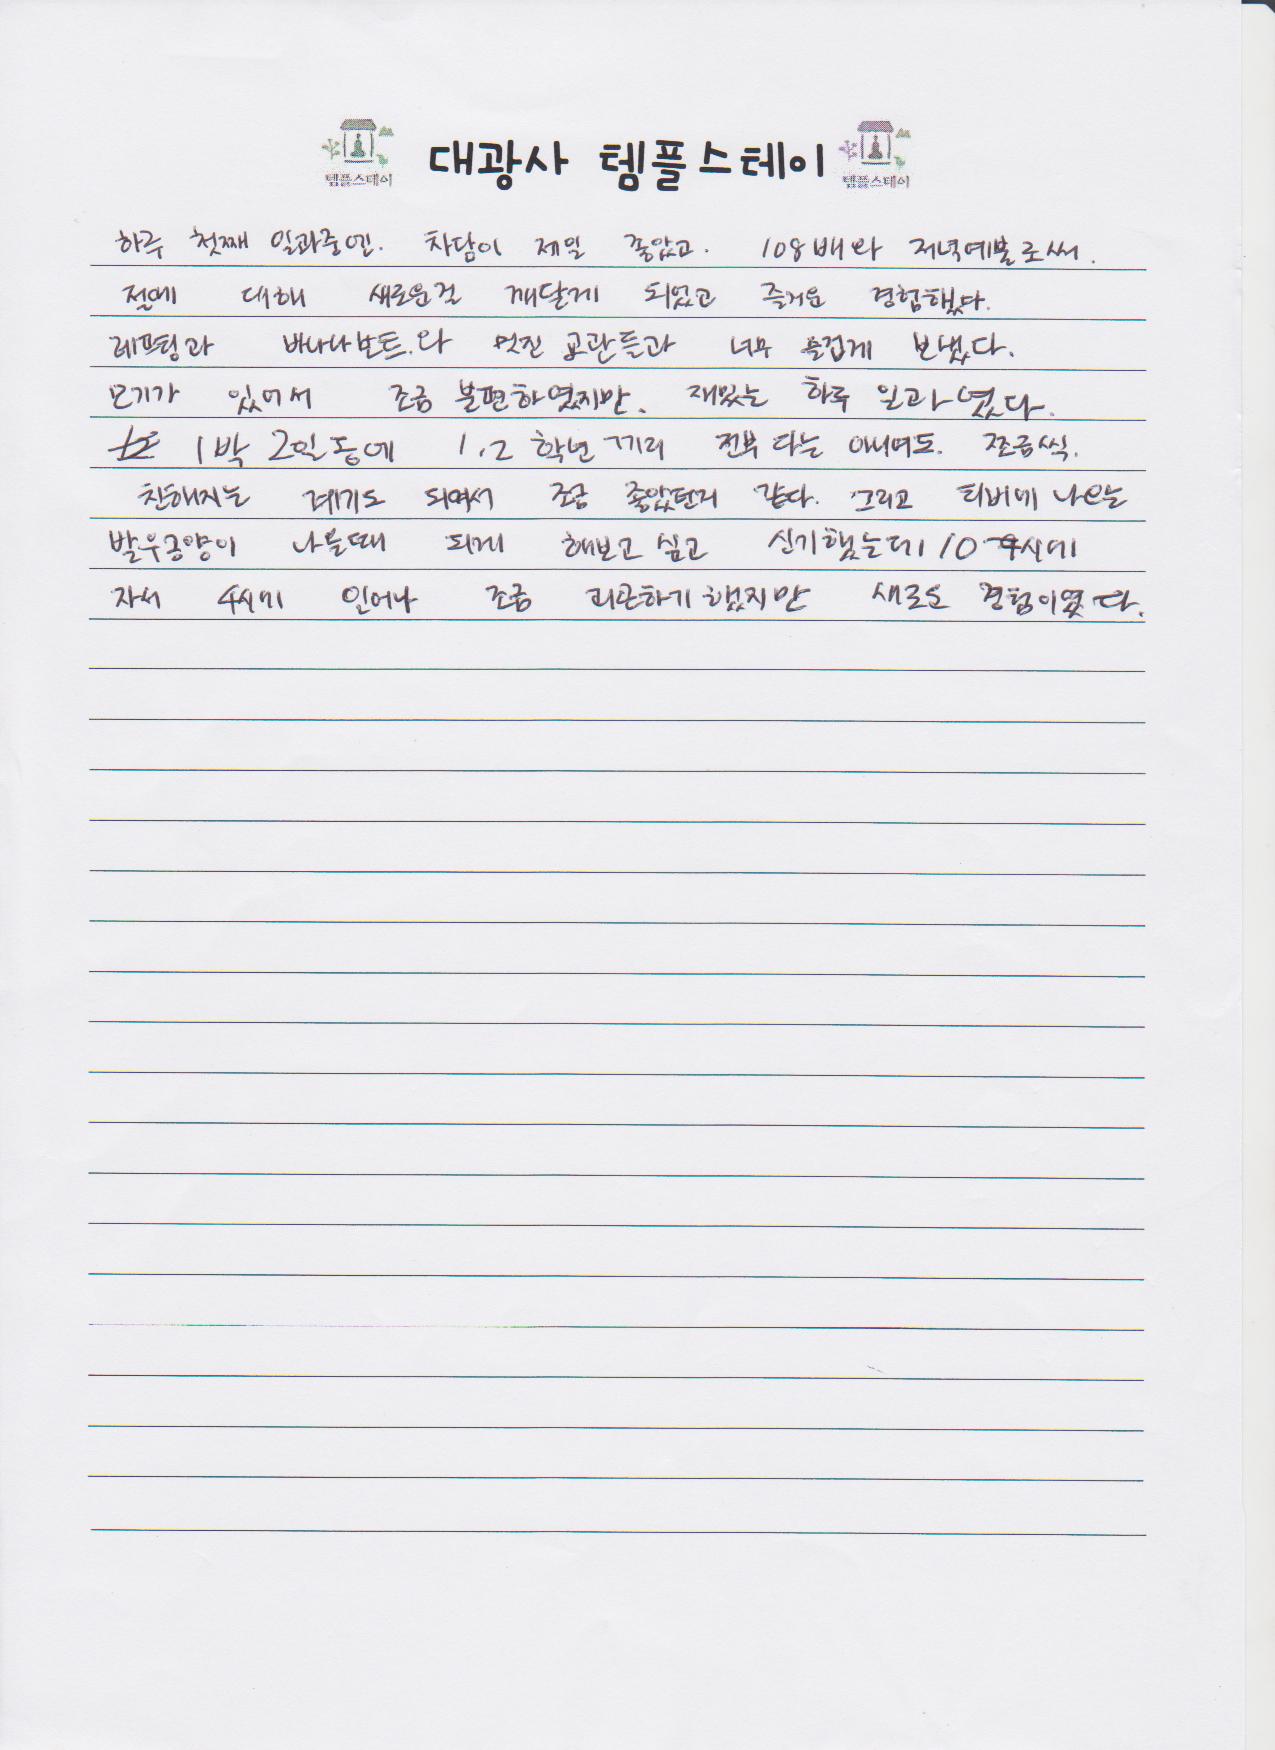 템플스테이 대광사 템플스테이 템플스테이
하루 첫째 일과중엔. 차담이 제일 좋았고. 108배와 저녁예불로써.
절에 대해 새로운걸 깨달게 되었고 즐거운 경험했다.
레프팅과 바나나보트.와 멋진 교관들과 너무 즐겁게 보냈다.
모기가 있어서 조금 불편하였지만. 재밌는 하루 일과였다.
1박 2일동에 1.2 학년끼리 전부 다는 아니여도. 조금씩.
친해지는 계기도 되여서 조금 좋았던거 같다. 그리고 티비에 나오는
발우공양이 나올때 되게 해보고 싶고 신기했는데 10시에
자서 4시에 일어나 조금 피곤하기했지만 새로운 경험이였다.